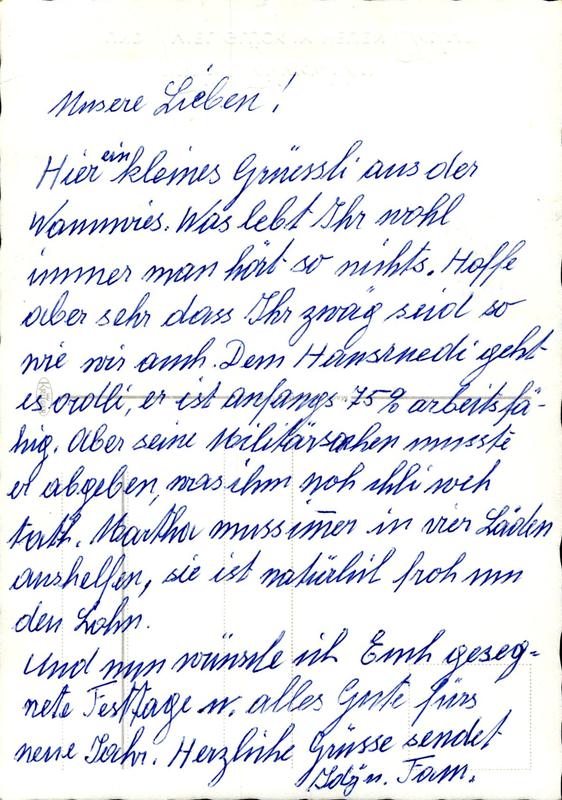 Unsere Lieben!
Hier ein kleines Grüessli aus der
Wannwies. Was lebt Ihr wohl
immer man hört so nichts. Hoffe
aber sehr dass Ihr zwäg seid so
wie wir auch. Dem Hansruedi geht
es ordli, er ist anfangs 75% arbeitsfä-
hig. Aber seine Militärsachen musste
er abgeben, was ihm noh chli weh
tath. Martha muss immer in vier Läden
aushelfen, sie ist natürlich froh um
den Lohn.
Und nun wünsche ich Euch geseg-
nete Festtage u. alles Gute fürs
neue Jahr. Herzliche Grüsse sendet
Idy u. Fam.